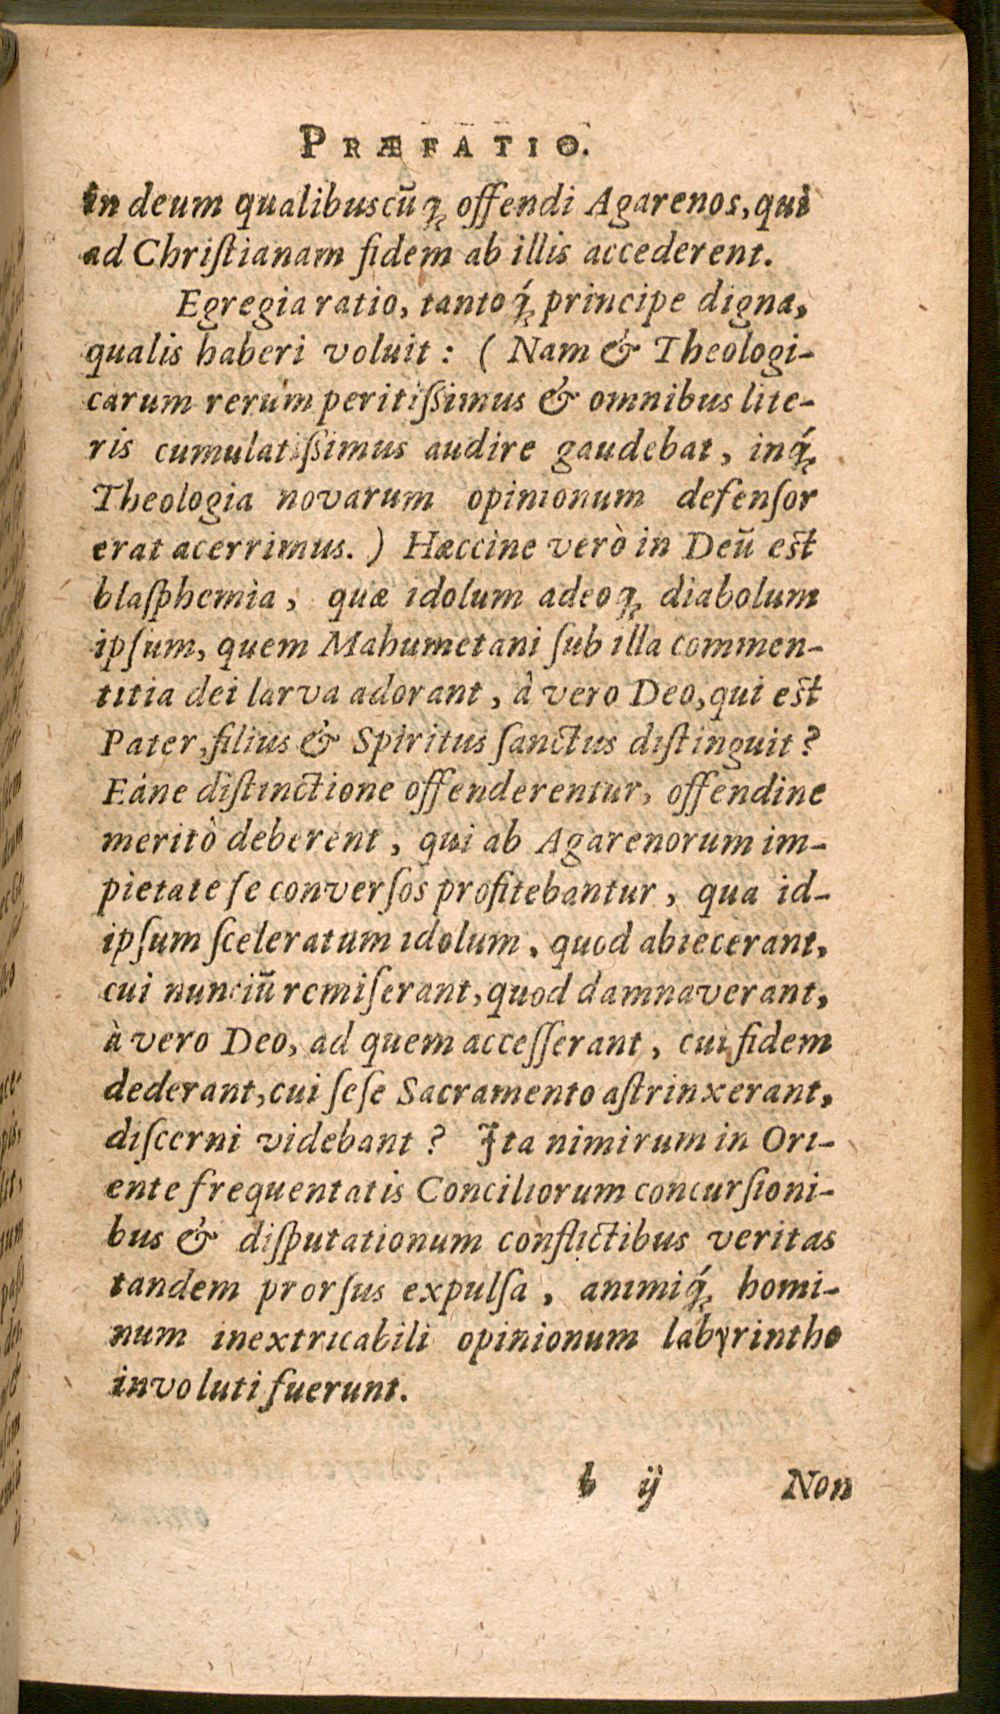 PRÆFATIO.
in deum qualibuscūq́ꝫ offendi Agarenos, qui
ad Chriſtianam fidem ab illis accederent.
Egregia ratio, tantoq́ꝫ principe digna,
qualis haberi voluit: (Nam & Theologi-
carum rerum peritiſſimus & omnibus lite-
ris cumulatiſſimus audire gaudebat, inq́ꝫ
Theologia novarum opinionum defenſor
erat acerrimus.) Hæccine verò in Deū eſt
blaſphemia, quæ idolum adeoqꝫ diabolum
ipſum, quem Mahumetani ſub illa commen-
titia dei larva adorant, à vero Deo, qui eſt
Pater, filius & Spiritus ſanctus diſtinguit?
Eáne diſtinctione offenderentur, offendine
meritò deberent, qui ab Agarenorum im-
pietate ſe converſos profitebantur, qua id-
ipſum ſceleratum idolum, quod abiecerant,
cui nunciū remiſerant, quod damnaverant,
à vero Deo, ad quem acceſſerant, cui fidem
dederant, cui ſeſe Sacramento aſtrinxerant,
diſcerni videbant? Ita nimirum in Ori-
ente frequentatis Conciliorum concurſioni-
bus & diſputationum conflictibus veritas
tandem prorſus expulſa, animiq́ꝫ homi-
num inextricabili opinionum labyrintho
involuti fuerunt.
b ij Non